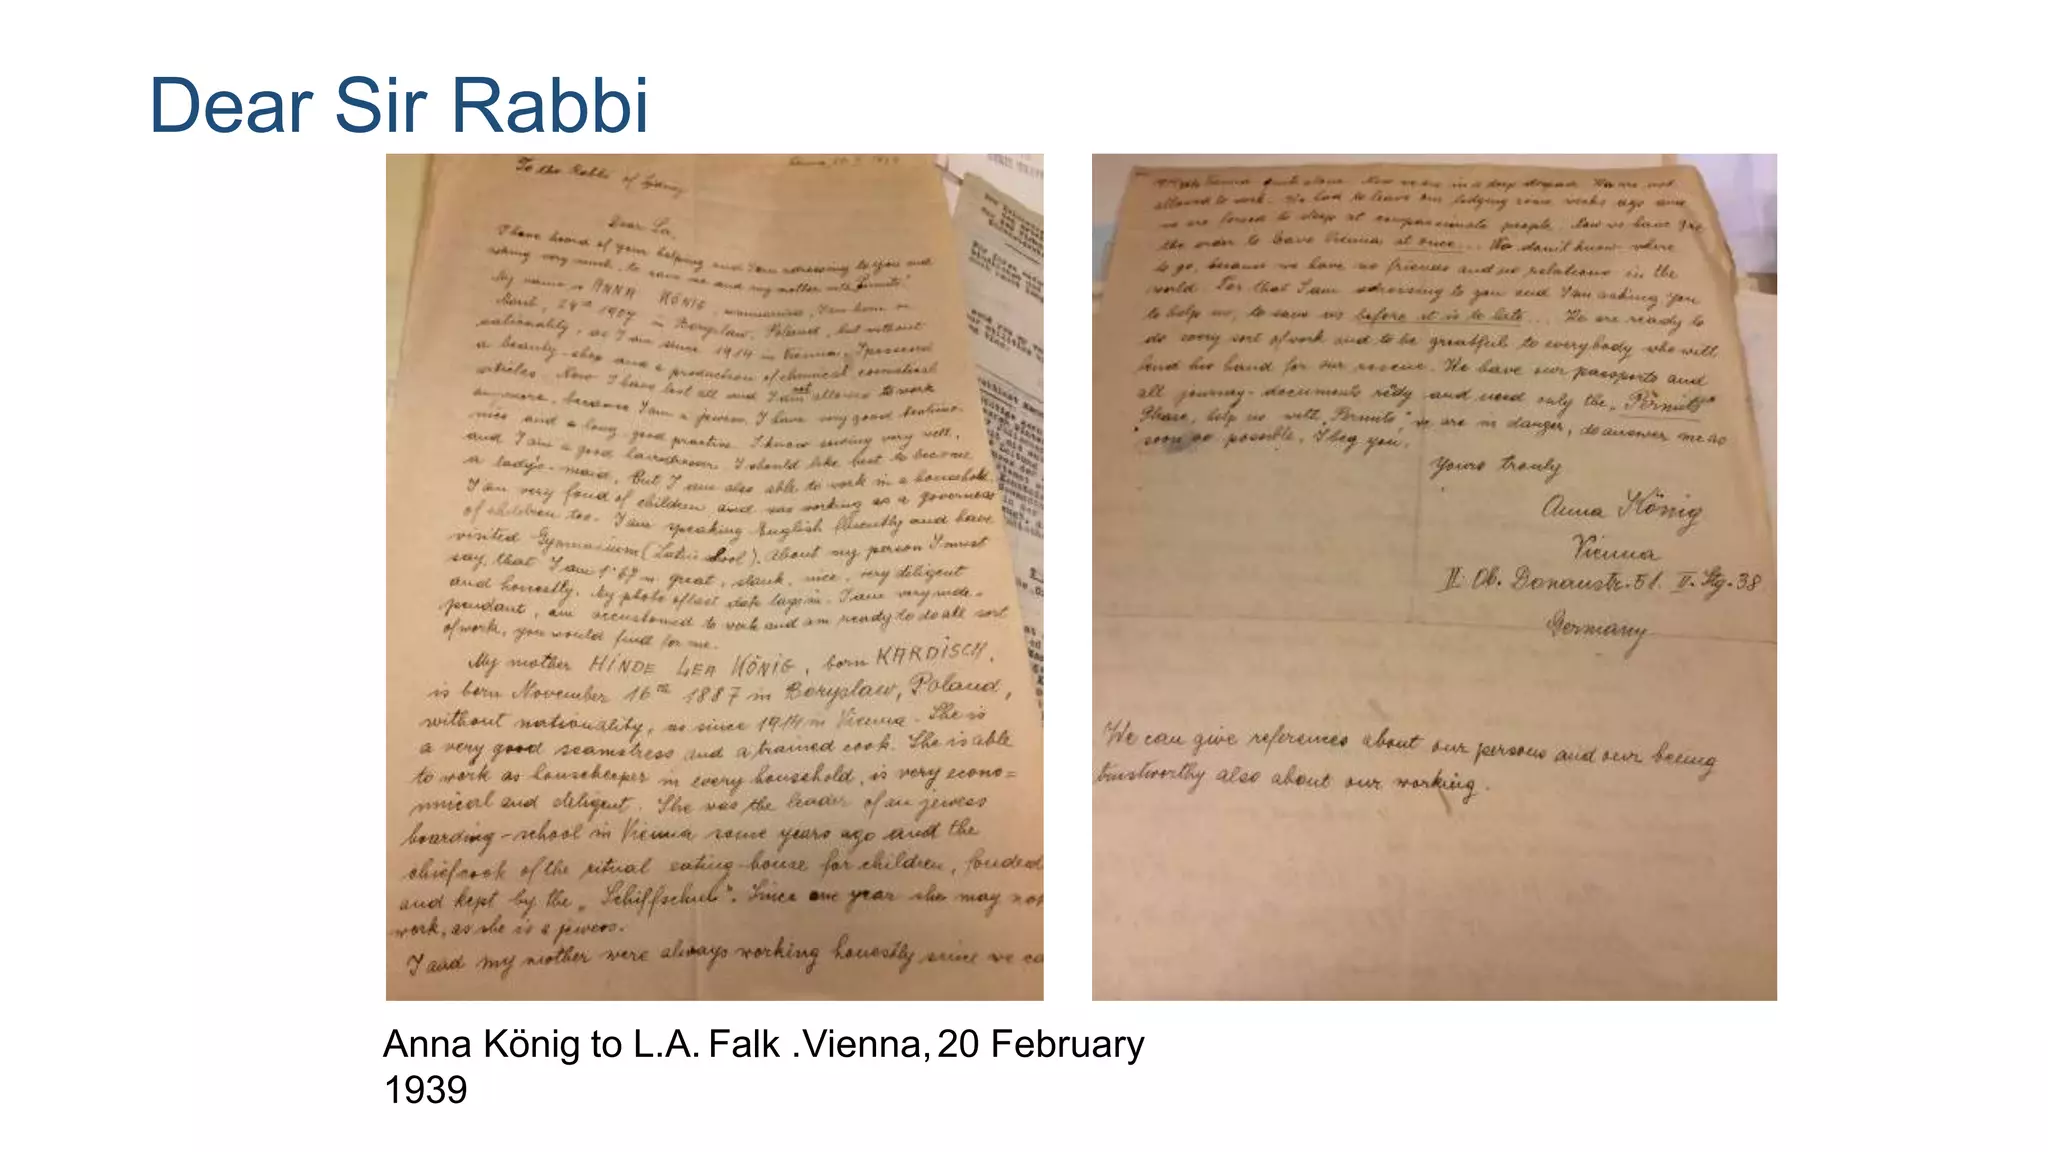 Dear Sir Rabbi
To the Rabbi of Sydney
Vienna, 20. 2. 1939
Dear Sir,
I have heard of your helping and I am adressing to you and
asking very much, to save me and my mother with "Permits."
My name is ANNA KÖNIG, unmarried, I am born on
24th 1907 in Boryslaw, Poland, but without
nationality, as I am since 1914 in Vienna. I possessed
a beauty-shop and a production of chemical cosmetical
articles. Now I have lost all and I am not allowed to work
anymore, because I am a jewess. I have very good testimo-
nies and a long good practise. I know sewing very well,
and I am a good hairdresser. I should like best to become
a lady's-maid, but I am also able to work in a household.
I am very fond of children and was working as a governess
of children too. I am speaking English fluently and have
visited Gymnasium (Latin School). About my person I must
say, that I am 1·67 m great, slank, nice, very diligent
and honestly. My photo of last date lays in. I am very inde-
pendant, am accustomed to work and am ready to do all sort
of work, you would find for me.
My mother HINDE LEA KÖNIG, born KARDISCH,
is born November 16th 1887 in Boryslaw, Poland,
without nationality, as since 1914 in Vienna. She is
a very good seamstress and a trained cook. She is able
to work as housekeeper in every household, is very econo=
mical and diligent. She was the leader of an jewess
boarding-school in Vienna some years ago and the
chiefcook of the ritual eating-house for children, founded
and kept by the "Schiffschul". Since one year she may not
work, as she is a jewess.
I and my mother were always working honestly since we ca
Vienna quite alone. Now we are in a deep We are not
allowed to work. We had to leave our lodging some weeks ago and
we are forced to sleep at compassionate people. Now we have
the order to leave Vienna at once... We don't know where
to go, because we have no friends and no relations in the
world. For that I am adressing to you and I am asking you
to help us, to save us before it is to late... We are ready to
do every sort of work and to be greatfull to everybody who will
lend his hand for our rescue. We have our passports and
all journey-documents redy and need only the "Permits"
Please, help us with "Permits", we are in danger, do answer me as
soon as possible, I beg you.
Yours trouly
Anna König
Vienna
II. Ob. Donaustr. 51. II. Stg. 38
Germany
We can give references about our persons and our beeing
trustworthy also about our working.
Anna König to L.A. Falk .Vienna, 20 February
1939